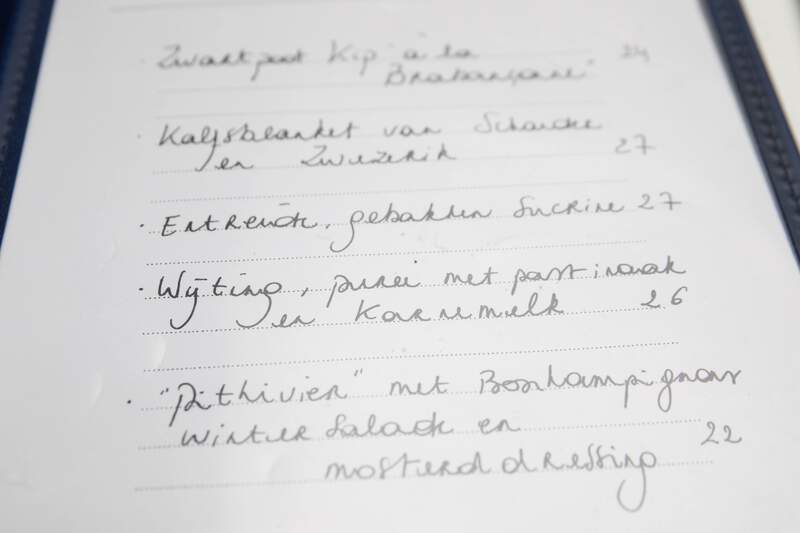 Zwartpoot Kip à la 24
Brabançonne"
· Kalfsblanket van Schouder
en Zwezerik 27
· Entrecôte, gebakken Sucrine 27
· Wijting, puree met pastinaak
en Karnemelk 26
· "Pithivier" met Boschampignons
winter Salade en 22
mosterd dressing